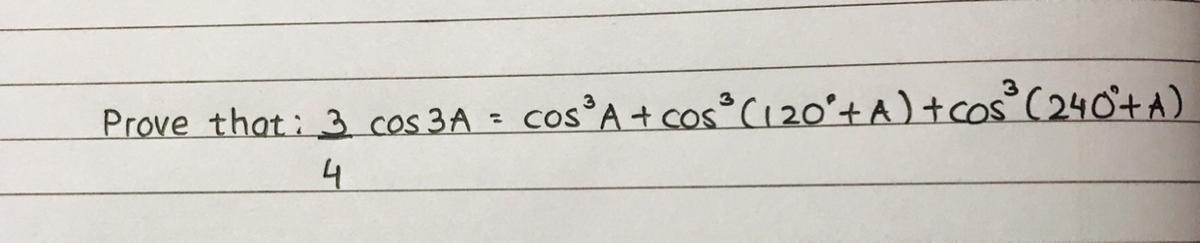 Prove that: 3/4 cos 3A = cos³A + cos³(120°+A) + cos³(240°+A)